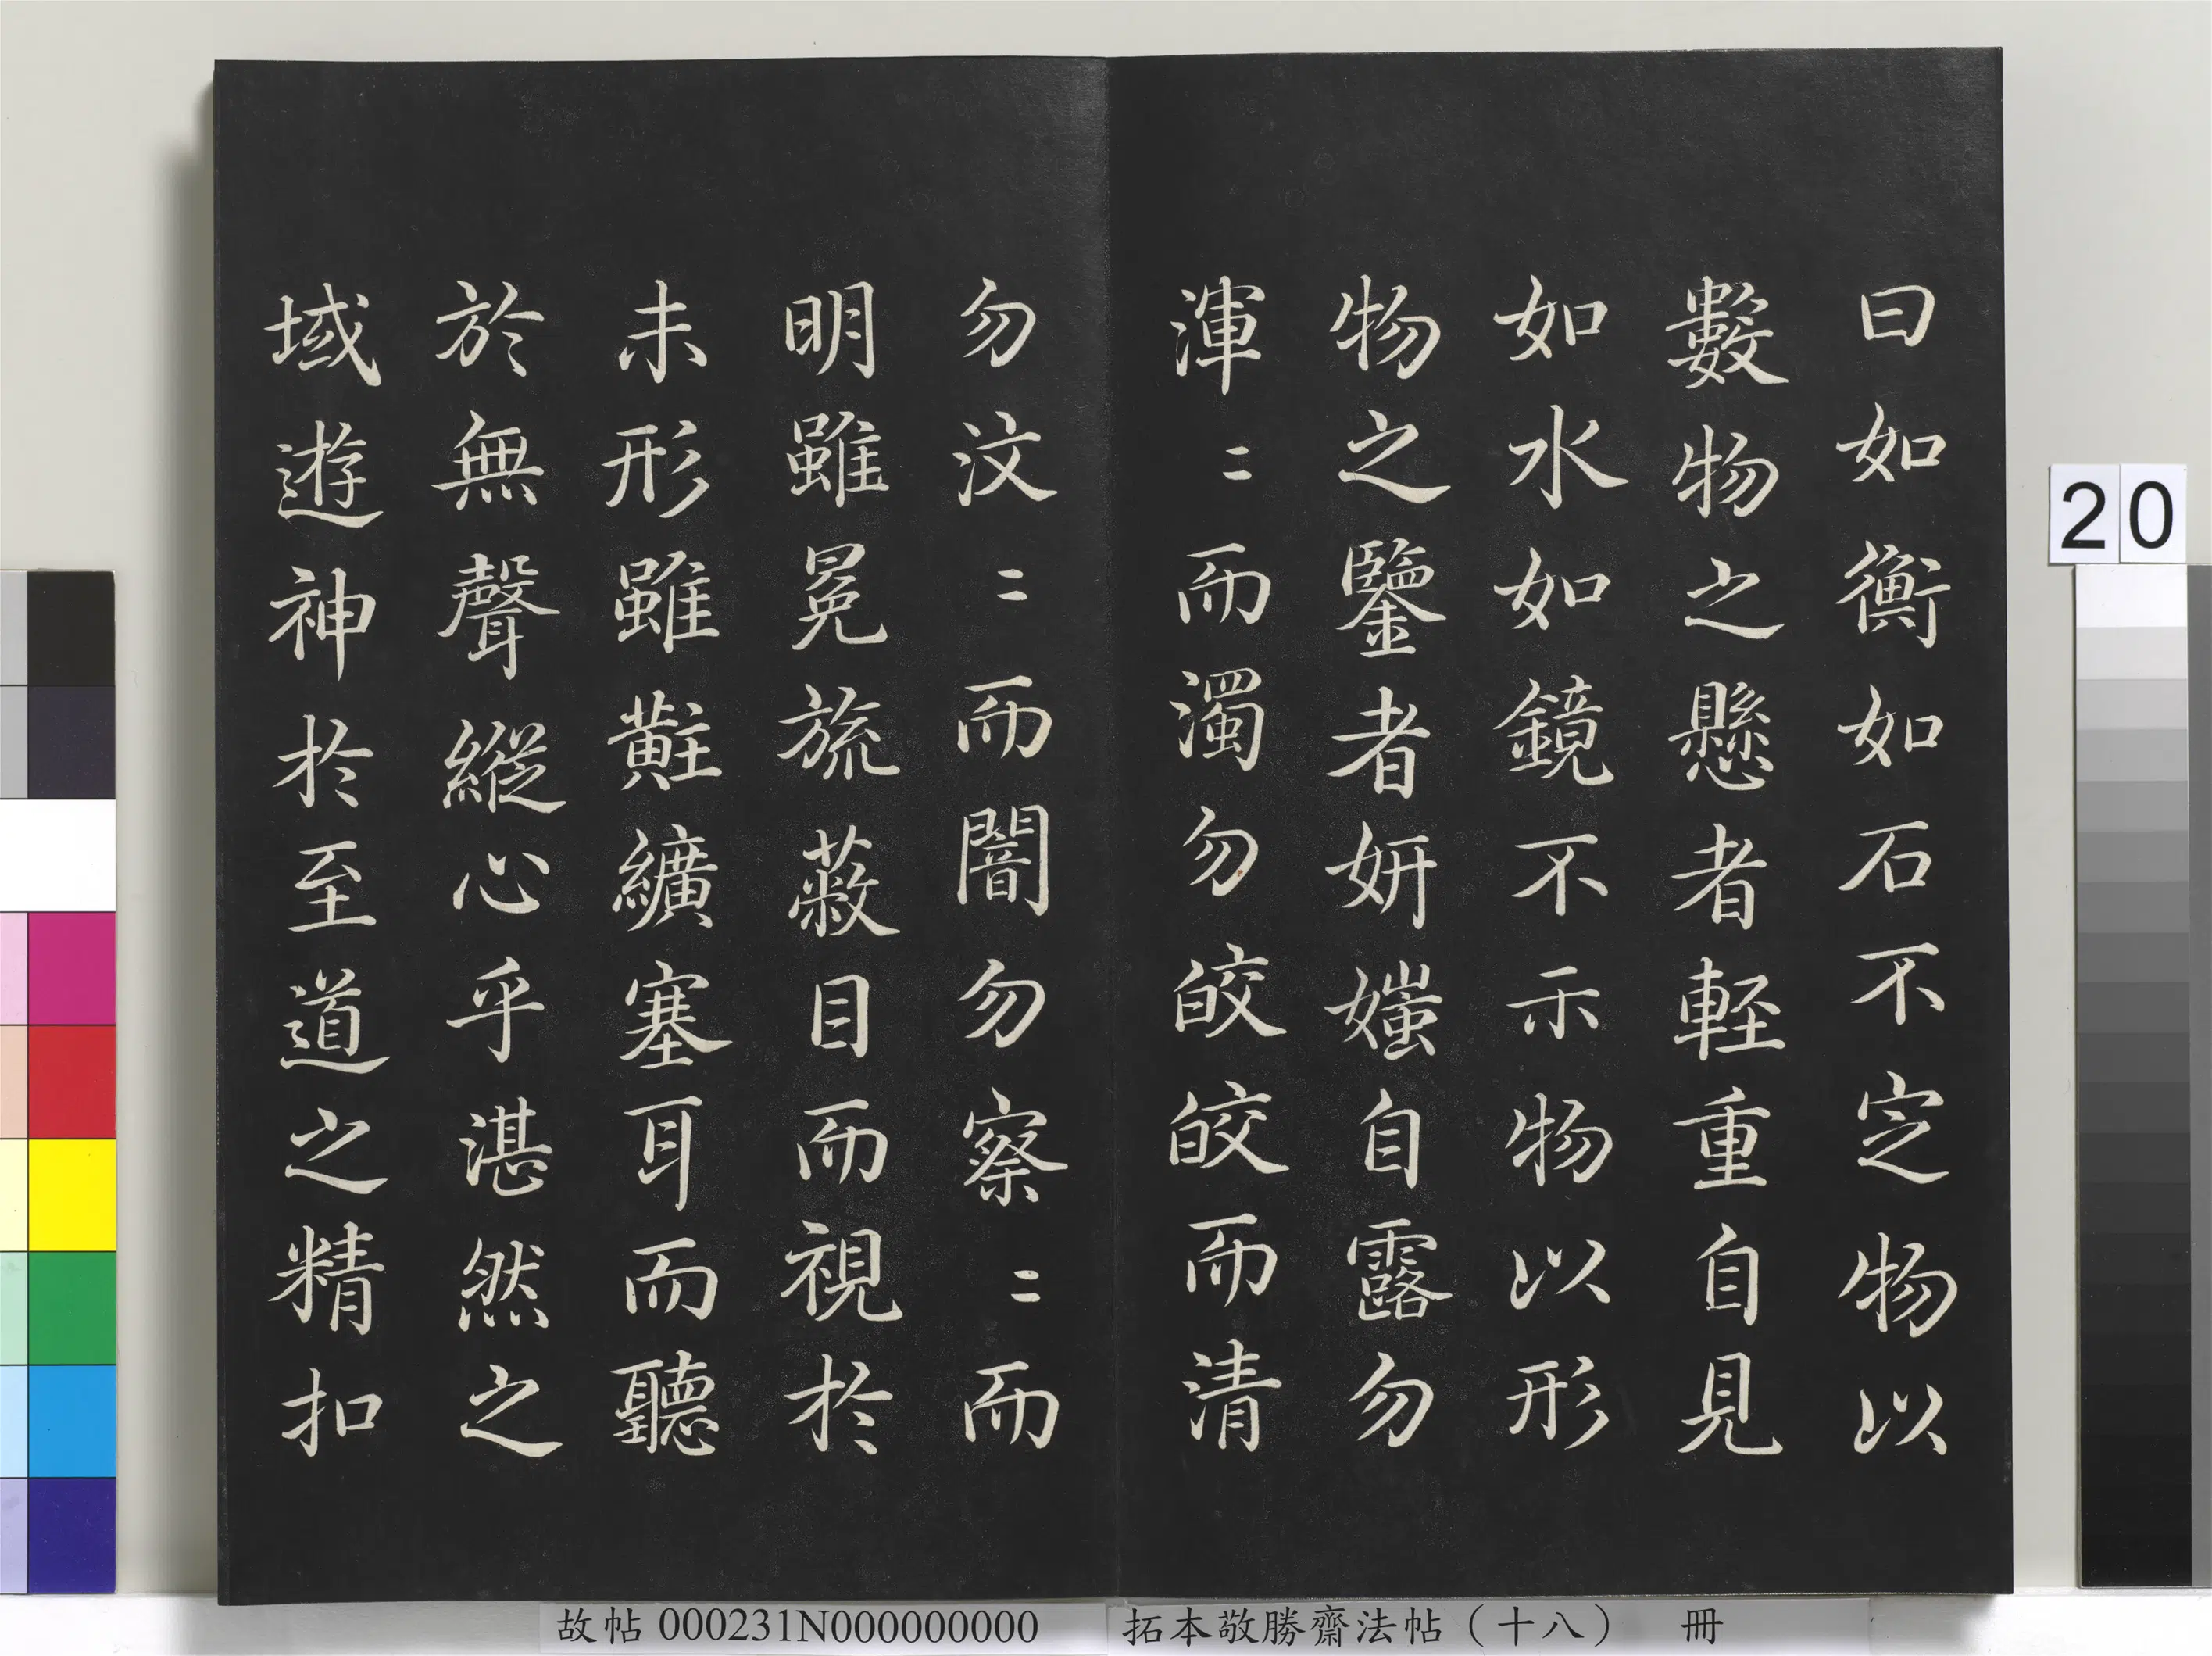 曰如衡如石不定物以
數物之懸者輕重自見
如水如鏡不示物以形
物之鑒者妍媸自露勿
渾〻而濁勿皎皎而清
勿汶〻而闇勿察〻而
明雖冕旒蔽目而視於
未形雖黈纊塞耳而聽
於無聲縱心乎湛然之
域遊神於至道之精扣
20
故帖 000231N000000000
拓本敬勝齋法帖（十八） 冊